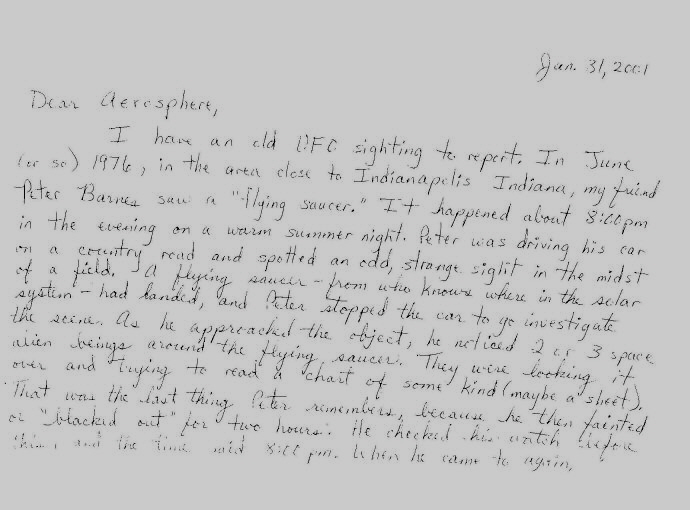 Jan. 31, 2001
Dear Aerosphere,
I have an old UFO sighting to report. In June
(or so) 1976, in the area close to Indianapolis Indiana, my friend
Peter Barnes saw a "flying saucer." It happened about 8:00 pm
in the evening on a warm summer night. Peter was driving his car
on a country road and spotted an odd, strange sight in the midst
of a field. A flying saucer - from who knows where in the solar
system - had landed, and Peter stopped the car to go investigate
the scene. As he approached the object, he noticed 2 or 3 space
alien beings around the flying saucer. They were looking it
over and trying to read a chart of some kind (maybe a sheet).
That was the last thing Peter remembers, because he then fainted
or "blacked out" for two hours. He checked his watch before
this, and the time said 8:00 pm. When he came to again,